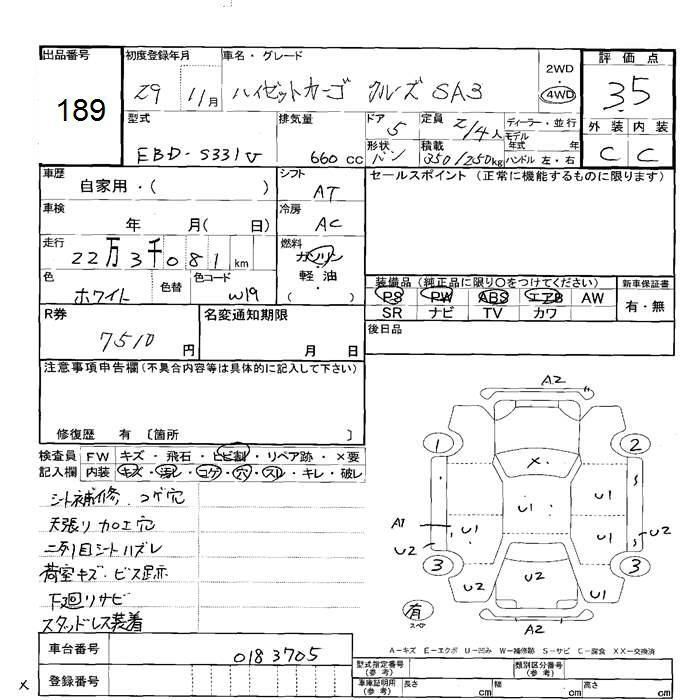 出品番号 初度登録年月 車名・グレード 評価点
189 29 11月 ハイゼットカーゴ クルーズ SA3 2WD・4WD 3.5
型式 排気量 ドア 定員 ディーラー・並行 外装 内装
EBD-S331V 660cc 5 2/4人 モデル年式 年式 C C
形状 バン 積載 350/250kg ハンドル 左・右
車歴 自家用・( ) シフト AT セールスポイント (正常に機能するものに限ります)
車検 年 月( 日) 冷房 AC
走行 22万3千081km 燃料 ガソリン・軽油・( )
色 ホワイト 色替 色コード W19
装備品 (純正品に限り○をつけてください) 新車保証書
PS PW ABS エアB AW 有・無
SR ナビ TV カワ
R券 7510円 名変通知期限 月 日 後日品
注意事項申告欄(不具合内容等は具体的に記入して下さい)
修復歴 有 〔箇所 〕
検査員 FW キズ・飛石・ヒビ割・リペア跡・×要
記入欄 内装 キズ・汚レ・コゲ・穴・スレ・キレ・破レ
シート補修、コゲ穴
天張り加工穴
二列目シートハズレ
荷室キズ・ビス跡
下廻リサビ
スタッドレス装着
A2
1 2
X
U1 U1
A1 U1 U1
U2 U2
3 3
U2 U2 U2
有
スペ
A2
A－キズ E－エクボ U－凹み W－補修跡 S－サビ C－腐食 XX－交換済
車台番号 0183705
型式指定番号(参考) 類別区分番号(参考)
x 登録番号
車庫証明用(参考) 長さ cm 幅 cm 高さ cm